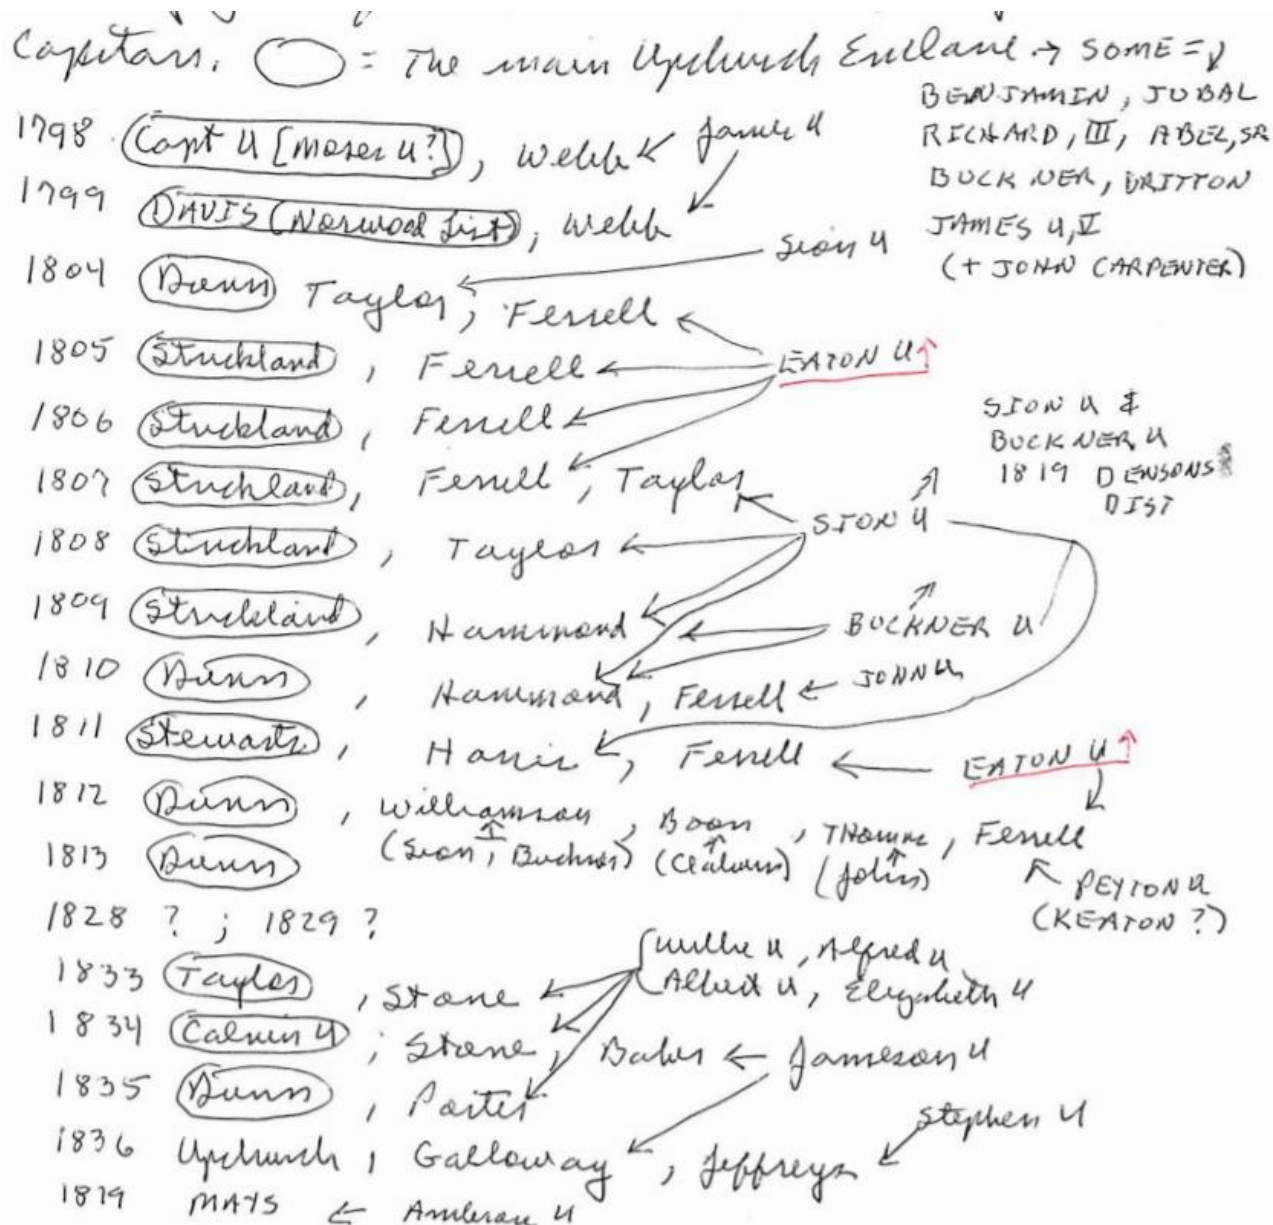 Capitars. = The main Upchurch Enclave → SOME = ↓
BENJAMIN, JUBAL
RICHARD, III, ABEL, SR
BUCKNER, BRITTON
JAMES U, V
(+ JOHN CARPENTER)
1798 Capt U [Moses U?], Webb ← James U
1799 DAVIS (Norwood List), Webb
1804 Dunn Taylor, Ferrell
Sion U
1805 Strickland, Ferrell ← EATON U ↑
1806 Strickland, Ferrell
SION U &
BUCKNER U
1819 DENSONS
DIST
1807 Strickland, Ferrell, Taylor
SION U
1808 Strickland, Taylor
1809 Strickland, Hammond
BUCKNER U
1810 Dunn, Hammond, Ferrell ← JOHN U
1811 Stewarts, Harris, Ferrell ← EATON U ↑
1812 Dunn, Williamson, Boon, THomas, Ferrell
1813 Dunn (Sion, Buckner) (Claborn) (John)
PEYTON U
(KEATON ?)
1828 ? ; 1829 ?
Willie U, Alfred U
Albert U, Elizabeth U
1833 Taylor, Stone
1834 Calvin U, Stone, Baker ← Jameson U
1835 Dunn, Porter
Stephen U
1836 Upchurch, Galloway, Jeffreys
1879 MAYS ← Ambrose U